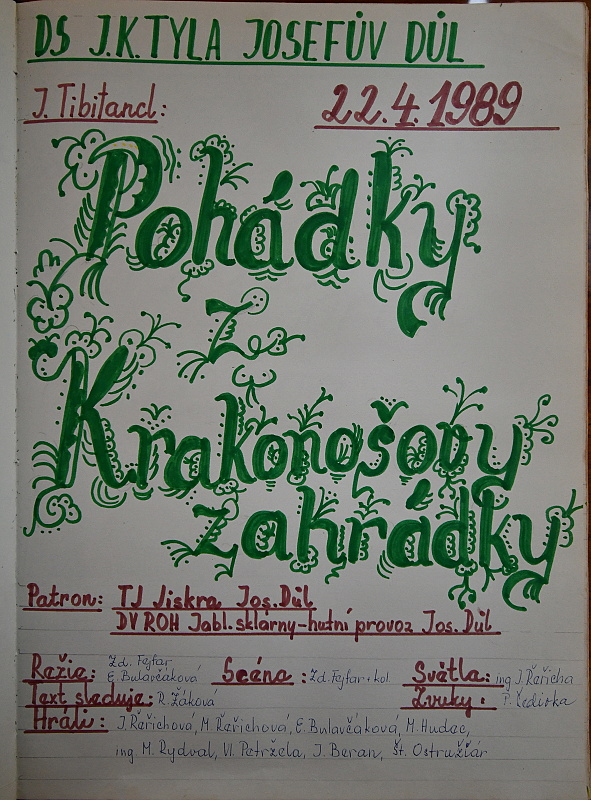 DS J.K.TYLA JOSEFŮV DŮL
J. Tibitancl: 22.4.1989
Pohádky
Ze
Krakonošovy
zahrádky
Patron: TJ Jiskra Jos.Důl
DV ROH Jabl.sklárny-hutní provoz Jos.Důl
Režie: Zd. Fejfar
E. Bulavčáková Scéna: Zd.Fejfar+kol. Světla: ing J.Řeřicha
Text sleduje: R.Žáková Zvuky:
Hráli: J.Řeřichová, M.Řeřichová, E.Bulavčáková, M.Hudec,
ing. M. Rydval, Vl. Petržela, J. Beran, Št. Ostružiár